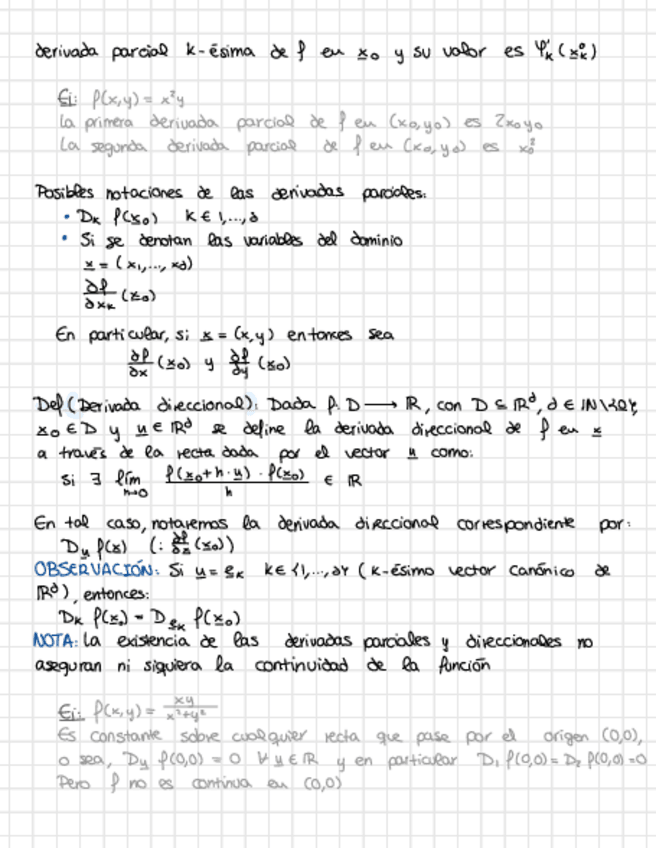 derivada parcial k-ésima de f en x₀ y su valor es φ'ₖ(x⁰ₖ)
Ej: f(x,y) = x²y
La primera derivada parcial de f en (x₀,y₀) es 2x₀y₀
La segunda derivada parcial de f en (x₀,y₀) es x₀²
Posibles notaciones de las derivadas parciales:
• Dₖ f(x₀) k ∈ 1,...,d
• Si se denotan las variables del dominio
x = (x₁,..., x_d)
∂f/∂xₖ (x₀)
En particular, si x = (x,y) entonces sea
∂f/∂x (x₀) y ∂f/∂y (x₀)
Def (Derivada direccional): Dada f: D ⟶ ℝ, con D ⊆ ℝᵈ, d ∈ ℕ\{0},
x₀ ∈ D y u ∈ ℝᵈ se define la derivada direccional de f en x
a través de la recta dada por el vector u como:
Si ∃ lím h→0 (f(x₀+h·u) - f(x₀))/h ∈ ℝ
En tal caso, notaremos la derivada direccional correspondiente por:
D_u f(x) (: (x₀))
OBSERVACIÓN: Si u = eₖ k ∈ {1,...,d} (k-ésimo vector canónico de
ℝᵈ), entonces:
Dₖ f(x₀) = D_eₖ f(x₀)
NOTA: La existencia de las derivadas parciales y direccionales no
aseguran ni siquiera la continuidad de la función
Ej: f(x,y) = xy/(x²+y²)
Es constante sobre cualquier recta que pase por el origen (0,0),
o sea, D_u f(0,0) = 0 ∀ u ∈ ℝ y en particular D₁ f(0,0) = D₂ f(0,0) = 0
Pero f no es continua en (0,0)